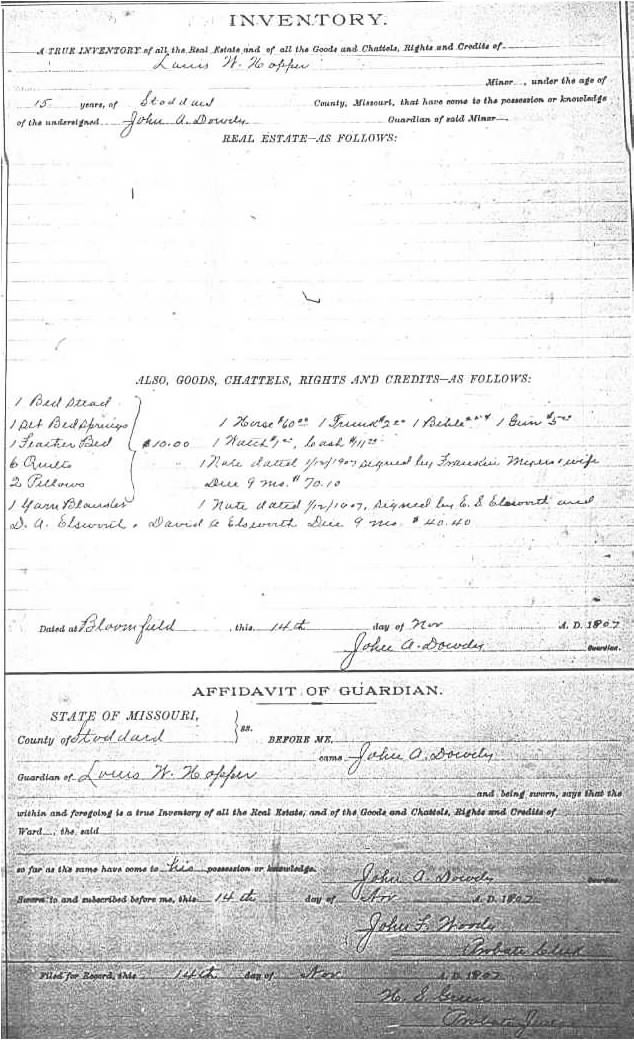 INVENTORY.
A TRUE INVENTORY of all the Real Estate and of all the Goods and Chattels, Rights and Credits of
Louis W. Hopper
Minor, under the age of
15 years, of Stoddard County, Missouri, that have come to the possession or knowledge
of the undersigned John A. Dowdy Guardian of said Minor
REAL ESTATE—AS FOLLOWS:
ALSO, GOODS, CHATTELS, RIGHTS AND CREDITS—AS FOLLOWS:
1 Bed stead
1 set Bedsprings 1 Horse $60.00 1 Trunk $2.00 1 Bible 1 Gun $5.00
1 Feather Bed $10.00 1 Watch $1.00, Cash $11.00
6 Quilts 1 Note dated 1/12/1907 signed by Franklin Myers & wife
2 Pillows Due 9 mo. $70.10
1 Yarn 1 Note dated 1/12/1907, signed by E. S. Elsworth and
D. A. Elsworth, David A Elsworth Due 9 mo. $40.40
Dated at Bloomfield, this 14th day of Nov A. D. 1907
John A. Dowdy
Guardian.
AFFIDAVIT OF GUARDIAN.
STATE OF MISSOURI,
County of Stoddard ss. BEFORE ME,
came John A. Dowdy
Guardian of Louis W. Hopper
and being sworn, says that the
within and foregoing is a true Inventory of all the Real Estate, and of the Goods and Chattels, Rights and Credits of
Ward, the said
so far as the same have come to his possession or knowledge.
John A. Dowdy
Guardian.
Sworn to and subscribed before me, this 14th day of Nov A. D. 1907
John L. Woody
Probate Clerk
Filed for Record, this 14th day of Nov A. D. 1907
H. S. Green
Probate